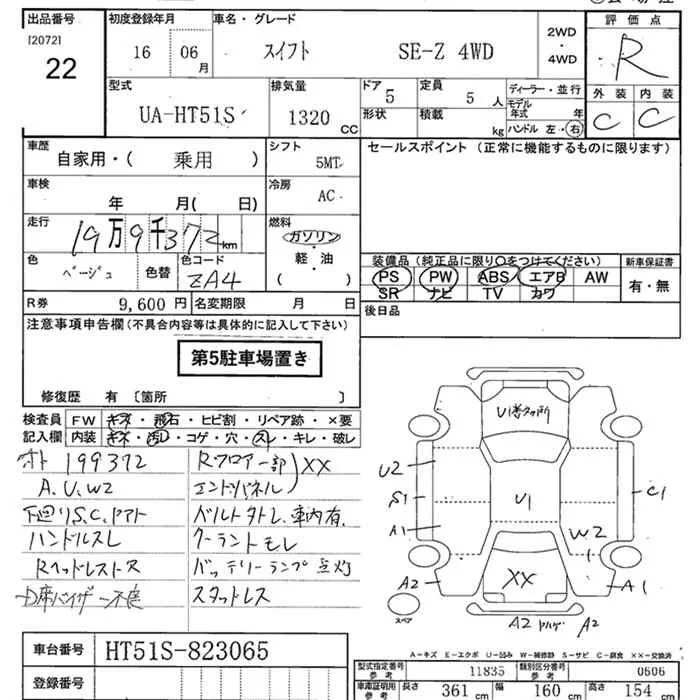 出品番号 初度登録年月 車名・グレード 評価点
[2072] 22 16 06月 スイフト SE-Z 4WD 2WD・4WD R
型式 排気量 ドア 5 定員 5人 ディーラー・並行 外装 内装
UA-HT51S 1320CC 形状 積載 kg モデル年式 年 ハンドル 左・右 C C
車歴 シフト セールスポイント (正常に機能するものに限ります)
自家用・( 乗用 ) 5MT
車検 年 月( 日) 冷房 AC
走行 19万9千372km 燃料 ガソリン・軽・油 ( )
色 ベージュ 色替 色コード ZA4
装備品 (純正品に限り○をつけてください) 新車保証書
PS PW ABS エアB AW 有・無
SR ナビ TV カワ
R券 9,600円 名変期限 月 日 後日品
注意事項申告欄 (不具合内容等は具体的に記入して下さい)
第5駐車場置き
修復歴 有 〔箇所 〕
検査員記入欄 FW キズ・飛石・ヒビ割・リペア跡・×要
内装 キズ・汚レ・コゲ・穴・スレ・キレ・破レ
オト 199372 Rフロアー部 XX
A.U.W2 エンドパネル
下廻りS.C. ベルト 車内有.
ハンドルスレ クーラントモレ
Rヘッドレスト バッテリーランプ点灯
D席バイザー不良 スタットレス
U1 U2 S1 A1 U1 C1 W2 A2 XX A1
スペア A2 A2
A-キズ E-エクボ U-凹み W-補修跡 S-サビ C-腐食 XX-交換済
車台番号 HT51S-823065
登録番号
型式指定番号参考 11835 類別区分番号参考 0606
車庫証明用参考 長さ 361cm 幅 160cm 高さ 154cm